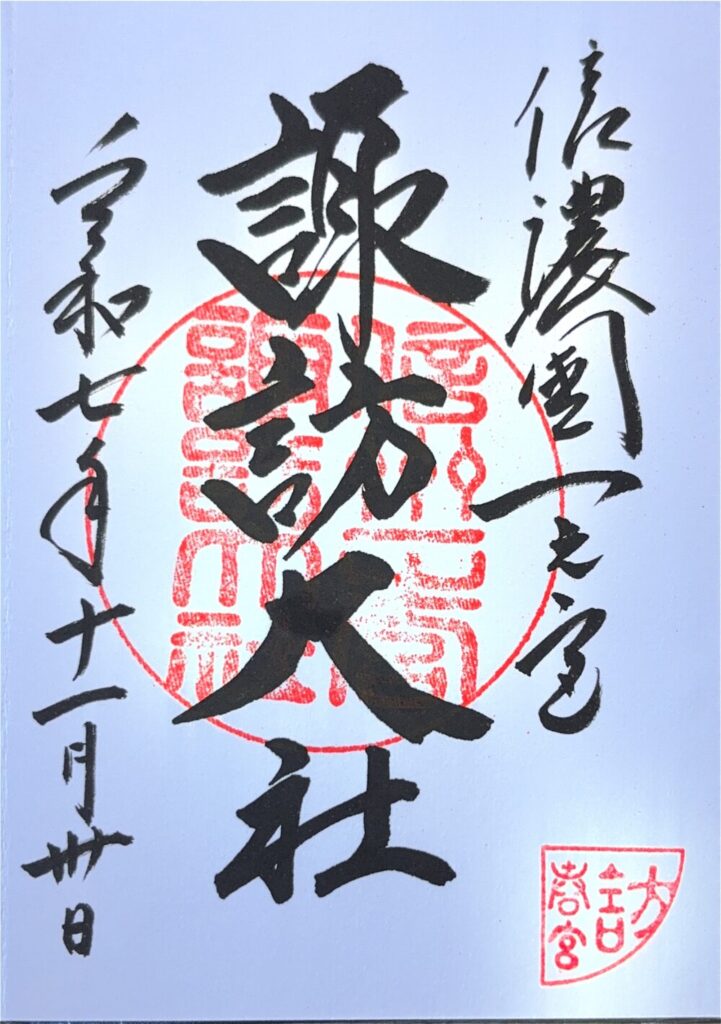 信濃國一之宮
諏訪大社
令和七年十一月卅日
訪
春宮